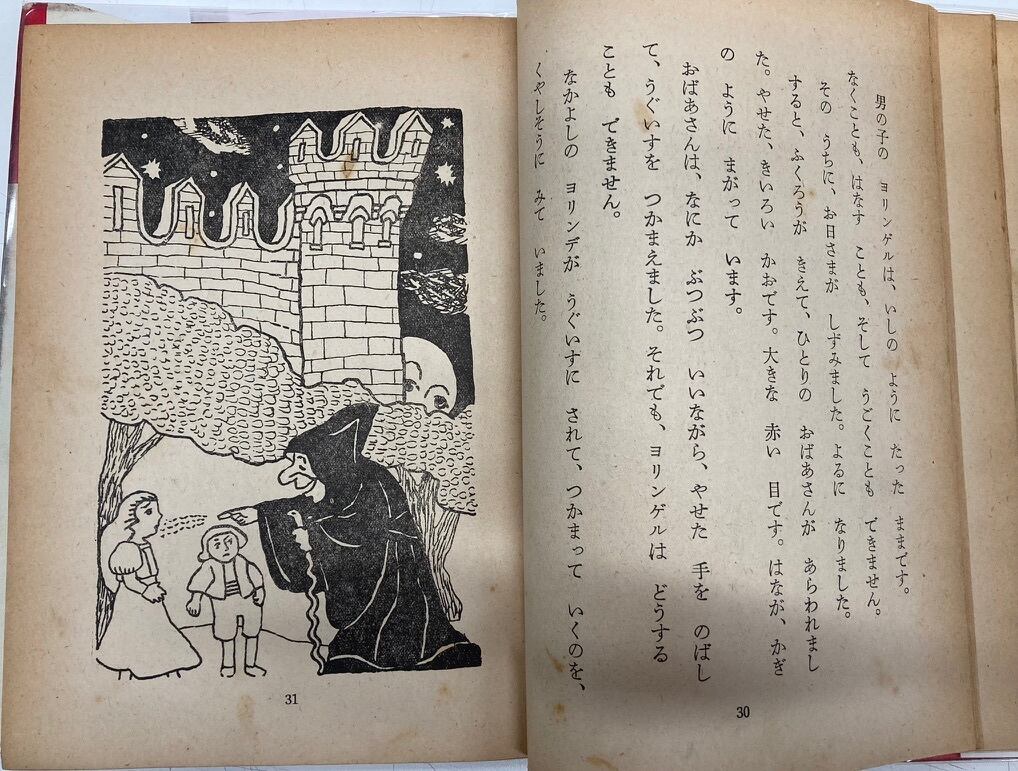 男の子の ヨリンゲルは、いしの ように たった ままです。
なくことも、はなす ことも、そして うごくことも できません。
その うちに、お日さまが しずみました。よるに なりました。
すると、ふくろうが きえて、ひとりの おばあさんが あらわれまし
た。やせた、きいろい かおです。大きな 赤い 目です。はなが、かぎ
の ように まがって います。
おばあさんは、なにか ぶつぶつ いいながら、やせた 手を のばし
て、うぐいすを つかまえました。それでも、ヨリンゲルは どうする
ことも できません。
なかよしの ヨリンデが うぐいすに されて、つかまって いくのを、
くやしそうに みて いました。
30
31